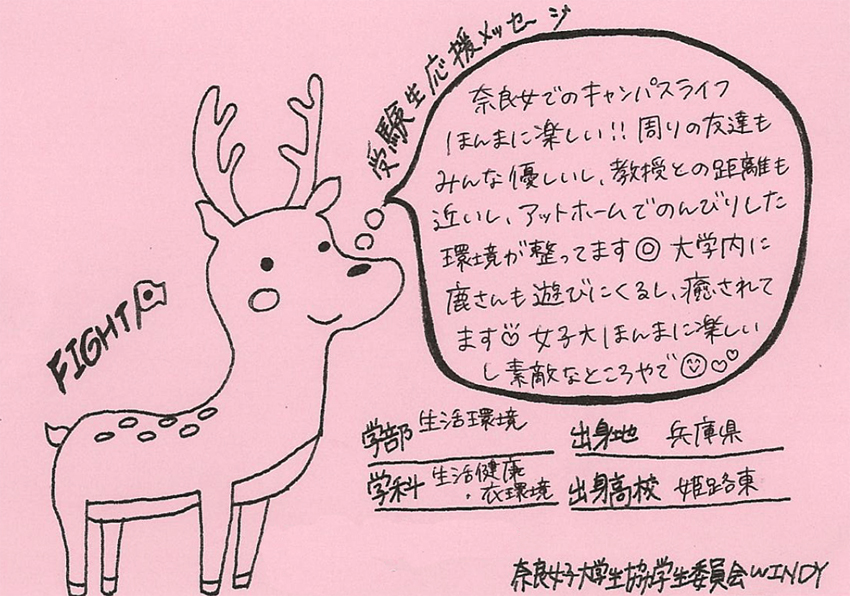 受験生応援メッセージ
奈良女でのキャンパスライフ
ほんまに楽しい!! 周りの友達も
みんな優しいし、教授との距離も
近いし、アットホームでのんびりした
環境が整ってます◎ 大学内に
鹿さんも遊びにくるし、癒されて
ます♡ 女子大ほんまに楽しい
し素敵なところやで
FIGHT!
学部 生活環境
出身地 兵庫県
学科 生活健康
・衣環境
出身高校 姫路東
奈良女子大学生協学生委員会WINDY